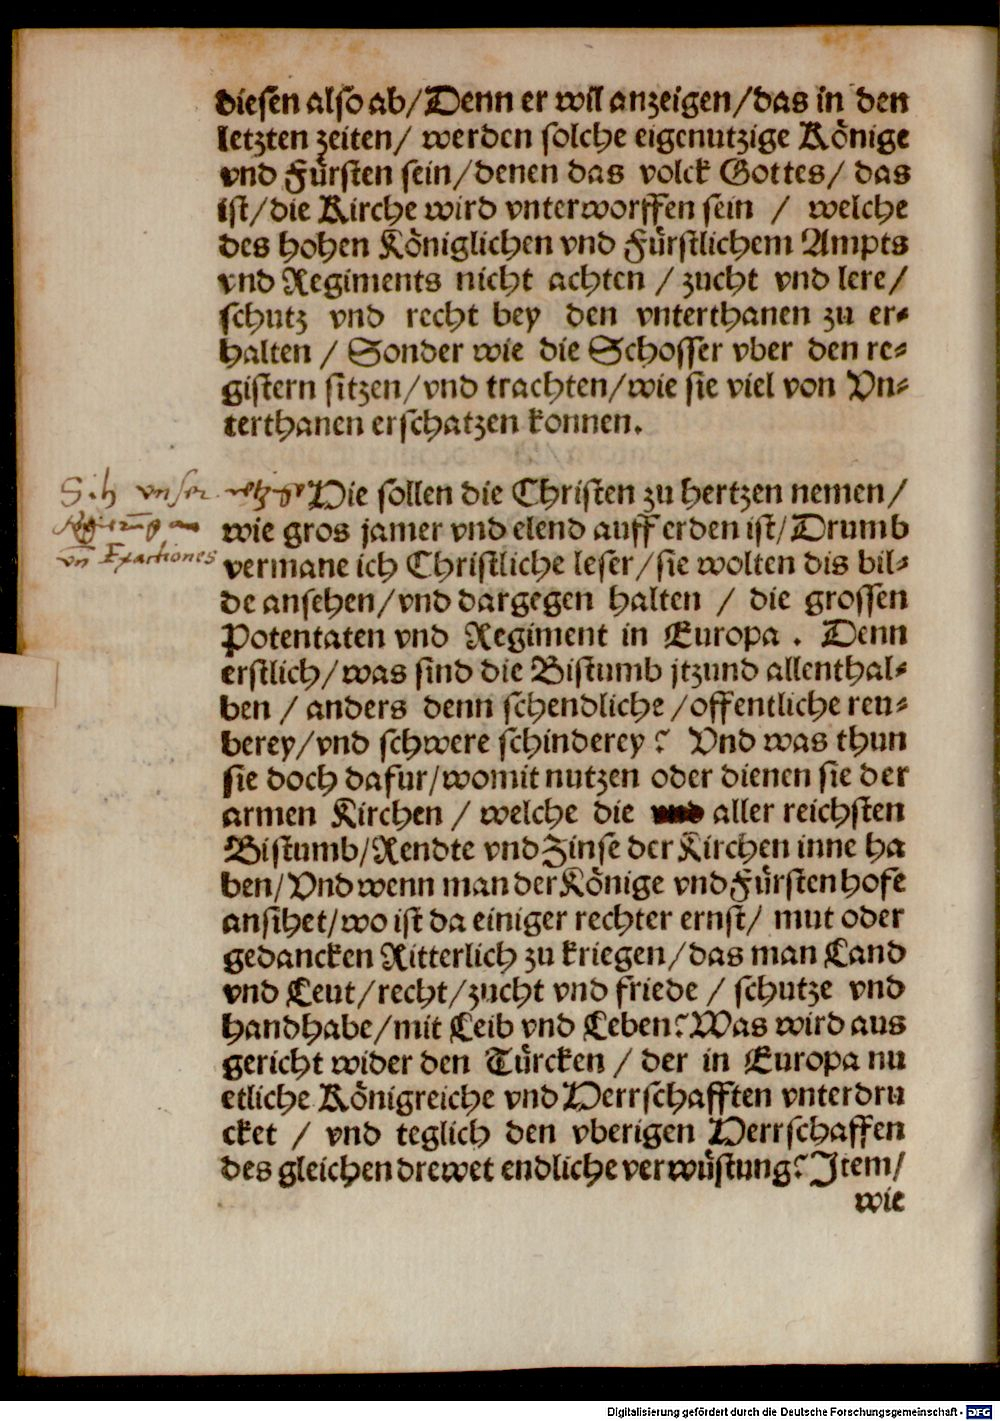 diesen also ab/Denn er wil anzeigen/das in den
letzten zeiten/ werden solche eigenutzige Könige
vnd Fürsten sein/denen das volck Gottes/ das
ist/die Kirche wird vnterworffen sein / welche
des hohen Königlichen vnd Fürstlichem Ampts
vnd Regiments nicht achten / zucht vnd lere/
schutz vnd recht bey den vnterthanen zu er-
halten / Sonder wie die Schosser vber den re-
gistern sitzen/vnd trachten/wie sie viel von Vn-
terthanen erschatzen konnen.
Sih vnser
Hie sollen die Christen zu hertzen nemen/
wie gros jamer vnd elend auff erden ist/Drumb
vn̄ Exactiones
vermane ich Christliche leser/sie wolten dis bil-
de ansehen/vnd dargegen halten / die grossen
Potentaten vnd Regiment in Europa . Denn
erstlich/was sind die Bistumb jtzund allenthal-
ben / anders denn schendliche /offentliche reu-
berey/vnd schwere schinderey? Vnd was thun
sie doch dafur/womit nutzen oder dienen sie der
armen Kirchen / welche die vnd aller reichsten
Bistumb/Rendte vnd Zinse der Kirchen inne ha
ben/Vnd wenn man der Könige vnd Fürsten hofe
ansihet/wo ist da einiger rechter ernst/ mut oder
gedancken Ritterlich zu kriegen/das man Land
vnd Leut/recht/zucht vnd friede / schutze vnd
handhabe/mit Leib vnd Leben? Was wird aus
gericht wider den Türcken / der in Europa nu
etliche Königreiche vnd Herrschafften vnterdru
cket / vnd teglich den vberigen Herrschaffen
des gleichen drewet endliche verwüstung? Item/
wie
Digitalisierung gefördert durch die Deutsche Forschungsgemeinschaft - DFG